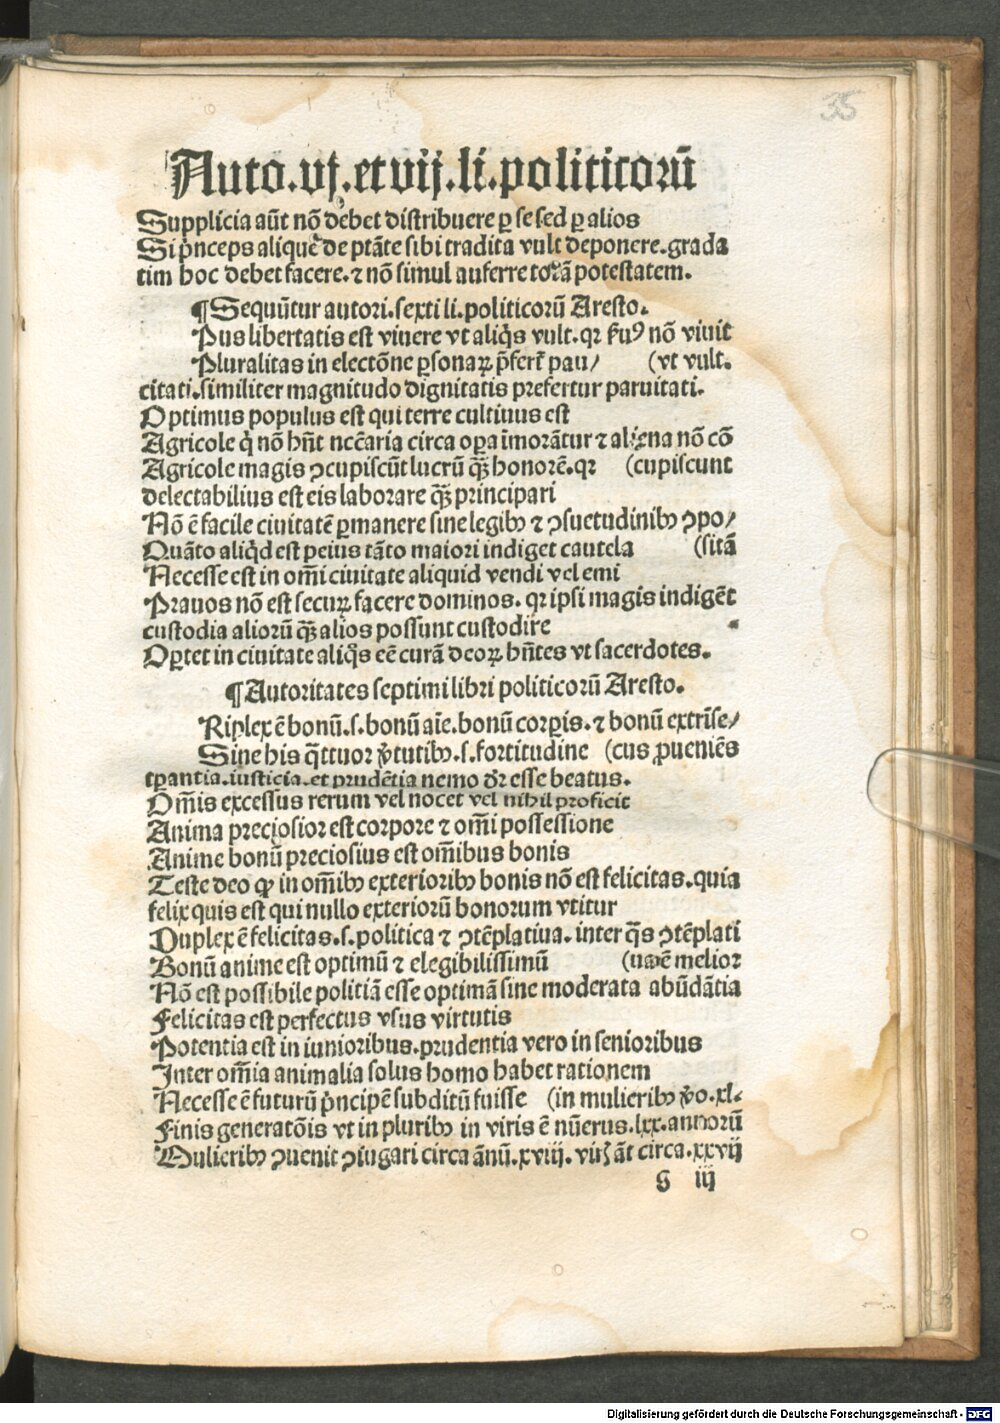 35
Auto.vj.et vij.li.politicorū
Supplicia aūt nō debet distribuere ꝑ se sed ꝑ alios
Si pͥnceps aliquē de ptāte sibi tradita vult deponere.grada
tim hoc debet facere.⁊ nō simul auferre totā potestatem.
¶Sequūtur autori.sexti li.politicorū Aresto.
Pus libertatis est viuere vt aliqͥs vult.qꝛ ẜuꝰ nō viuit
Pluralitas in electōne ꝑsonaꝝ p̄fert᷑ pau/ (vt vult.
citati.similiter magnitudo dignitatis prefertur paruitati.
Optimus populus est qui terre cultiuus est
Agricole qͥ nō hn̄t nccͣ̄aria circa oꝑa īmorātur ⁊ aliena nō cō
Agricole magis ↄcupiscūt lucrū qͣꝫ honorē.qꝛ (cupiscunt
delectabilius est eis laborare qͣꝫ principari
Nō ē facile ciuitatē ꝑmanere sine legibꝫ ⁊ ↄsuetudinibꝫ ↄpo/
Quāto aliqͥd est peius tāto maiori indiget cautela (sitā
Necesse est in om̄i ciuitate aliquid vendi vel emi
Prauos nō est secuꝝ facere dominos.qꝛ ipsi magis indigēt
custodia aliorū qͣꝫ alios possunt custodire
Oꝑtet in ciuitate aliqͦs eē̄ curā deoꝝ hn̄tes vt sacerdotes.
¶Autoritates septimi libri politicorū Aresto.
Riplex ē bonū.s.bonū aīe.bonū corꝑis.⁊ bonū extrīse/
Sine his qͣttuor v̓tutibꝫ.s.fortitudine (cus ꝓueniēs
tꝑantia.iusticia.et prudētia nemo dꝛ̄ esse beatus.
Om̄is excessus rerum vel nocet vel nihil proficit
Anima preciosior est corpore ⁊ om̄i possessione
Anime bonū preciosius est om̄ibus bonis
Teste deo ꝙ in om̄ibꝫ exterioribꝫ bonis nō est felicitas.quia
felix quis est qui nullo exteriorū bonorum vtitur
Duplex ē felicitas.s.politica ⁊ ↄtēplatiua.inter qͣs ↄtēplati
Bonū anime est optimū ⁊ elegibilissimū (ua ē melior
Nō est possibile politiā esse optimā sine moderata abūdātia
Felicitas est perfectus vsus virtutis
Potentia est in iunioribus.prudentia vero in senioribus
Inter om̄ia animalia solus homo habet rationem
Necesse ē futurū pͥncipē subditū fuisse (in mulieribꝫ v̓o.xl.
Finis generatōis vt in pluribꝫ in viris ē nūerus.lxx.annorū
Mulieribꝫ ↄuenit ↄiugari circa ānū.xviij. viꝭ āt circa.xxvij
g iij
Digitalisierung gefördert durch die Deutsche Forschungsgemeinschaft - DFG